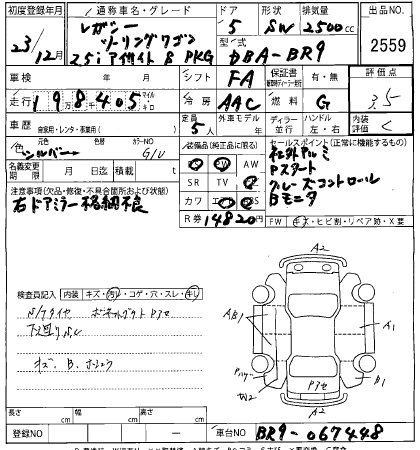 初度登録年月 通称車名・グレード ドア 形状 排気量 出品NO
23 12月 レガシー ツーリングワゴン 5 SW 2500cc
2.5i アイサイト B PKG 型式 DBA-BR9 2559
車検 年 月 シフト FA 保証書 有・無 評価点
走行 198405 マイル キロ 冷房 AAC 燃料 G 3.5
車歴 自家用・レンタ・事業用( ) 定員 5人 外車モデル 年 ディーラー 並行 ハンドル 左・右 内装評価 C
色 元色 色替 カラーNO シルバー G1U
名義変更期限 月 日迄 積載量 t
装備品(純正品に限る) セールスポイント(正常に機能するもの)
AW
SR TV
カワ
R券 14820
社外アルミ
Pスタート
クルーズコントロール
Bモニタ
注意事項(欠品・修復・不具合箇所および状態)
右ドアミラー格納不良
FW キズ・ヒビ割・リペア跡・X要
検査員記入 内装 キズ・汚レ・コゲ・穴・スレ・キレ
A2
AB1
A1
Pアセ
W2
B1
A2
長さ cm 幅 cm 高さ cm
登録NO 車台NO BR9-067448